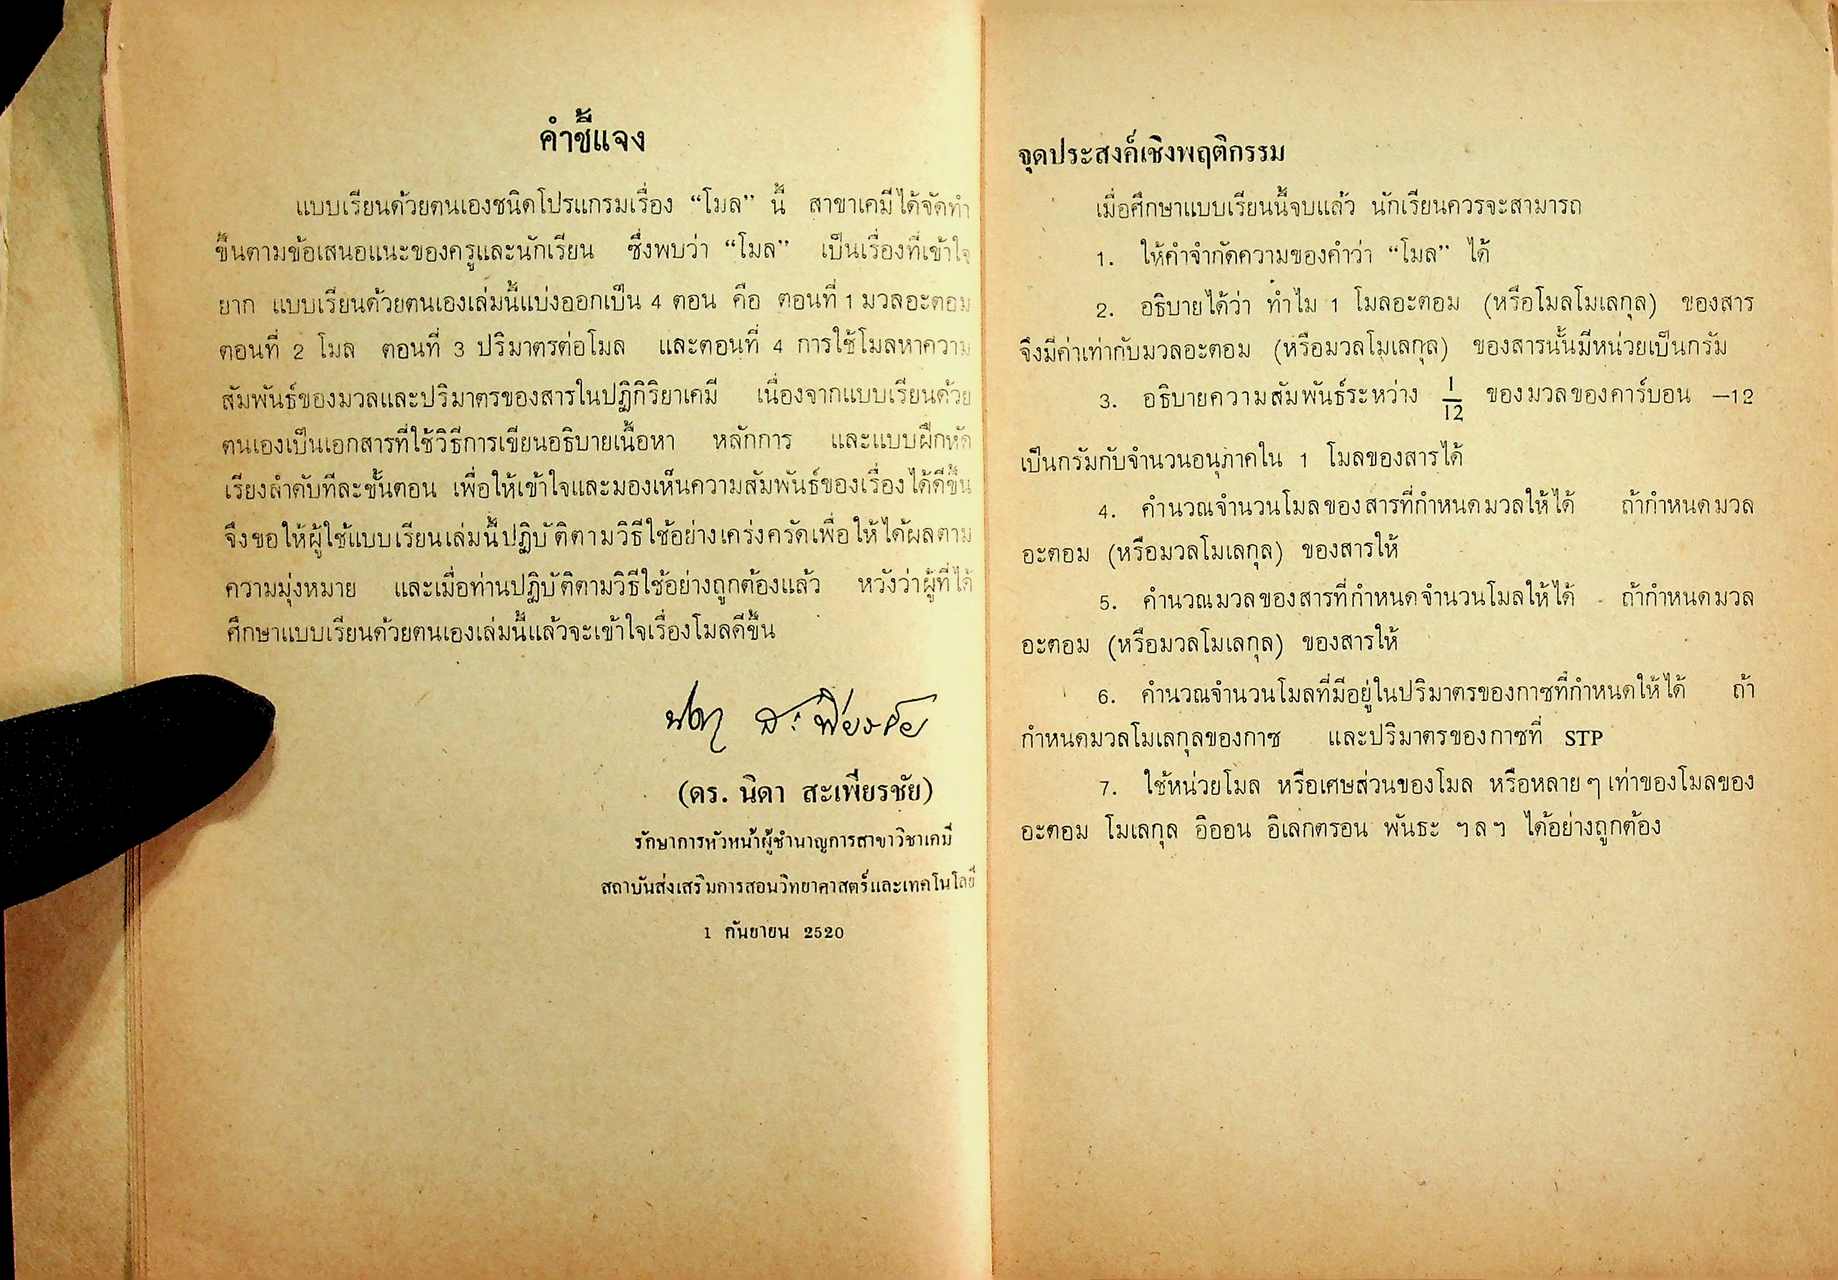 คำชี้แจง
แบบเรียนด้วยตนเองชนิดโปรแกรมเรื่อง “โมล” นี้ สาขาเคมีได้จัดทำ
ขึ้นตามข้อเสนอแนะของครูและนักเรียน ซึ่งพบว่า “โมล” เป็นเรื่องที่เข้าใจ
ยาก แบบเรียนด้วยตนเองเล่มนี้แบ่งออกเป็น 4 ตอน คือ ตอนที่ 1 มวลอะตอม
ตอนที่ 2 โมล ตอนที่ 3 ปริมาตรต่อโมล และตอนที่ 4 การใช้โมลหาความ
สัมพันธ์ของมวลและปริมาตรของสารในปฏิกิริยาเคมี เนื่องจากแบบเรียนด้วย
ตนเองเป็นเอกสารที่ใช้วิธีการเขียนอธิบายเนื้อหา หลักการ และแบบฝึกหัด
เรียงลำดับทีละขั้นตอน เพื่อให้เข้าใจและมองเห็นความสัมพันธ์ของเรื่องได้ดีขึ้น
จึงขอให้ผู้ใช้แบบเรียนเล่มนี้ปฏิบัติตามวิธีใช้อย่างเคร่งครัดเพื่อให้ได้ผลตาม
ความมุ่งหมาย และเมื่อท่านปฏิบัติตามวิธีใช้อย่างถูกต้องแล้ว หวังว่าผู้ที่ได้
ศึกษาแบบเรียนด้วยตนเองเล่มนี้แล้วจะเข้าใจเรื่องโมลดีขึ้น
นิดา สะเพียรชัย
(ดร. นิดา สะเพียรชัย)
รักษาการหัวหน้าผู้ชำนาญการสาขาวิชาเคมี
สถาบันส่งเสริมการสอนวิทยาศาสตร์และเทคโนโลยี
1 กันยายน 2520
จุดประสงค์เชิงพฤติกรรม
เมื่อศึกษาแบบเรียนนี้จบแล้ว นักเรียนควรจะสามารถ
1. ให้คำจำกัดความของคำว่า “โมล” ได้
2. อธิบายได้ว่า ทำไม 1 โมลอะตอม (หรือโมลโมเลกุล) ของสาร
จึงมีค่าเท่ากับมวลอะตอม (หรือมวลโมเลกุล) ของสารนั้นมีหน่วยเป็นกรัม
3. อธิบายความสัมพันธ์ระหว่าง 1/12 ของมวลของคาร์บอน –12
เป็นกรัมกับจำนวนอนุภาคใน 1 โมลของสารได้
4. คำนวณจำนวนโมลของสารที่กำหนดมวลให้ได้ ถ้ากำหนดมวล
อะตอม (หรือมวลโมเลกุล) ของสารให้
5. คำนวณมวลของสารที่กำหนดจำนวนโมลให้ได้ ถ้ากำหนดมวล
อะตอม (หรือมวลโมเลกุล) ของสารให้
6. คำนวณจำนวนโมลที่มีอยู่ในปริมาตรของกาซที่กำหนดให้ได้ ถ้า
กำหนดมวลโมเลกุลของกาซ และปริมาตรของกาซที่ STP
7. ใช้หน่วยโมล หรือเศษส่วนของโมล หรือหลายๆ เท่าของโมลของ
อะตอม โมเลกุล อิออน อิเลกตรอน พันธะ ฯลฯ ได้อย่างถูกต้อง